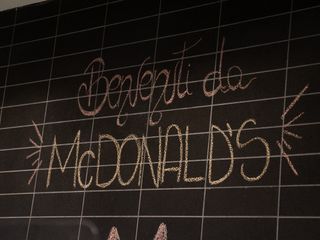 Benvenuti da
McDONALD'S